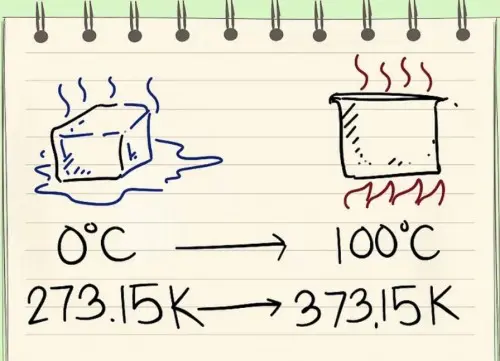 0°C → 100°C
273.15K → 373.15K